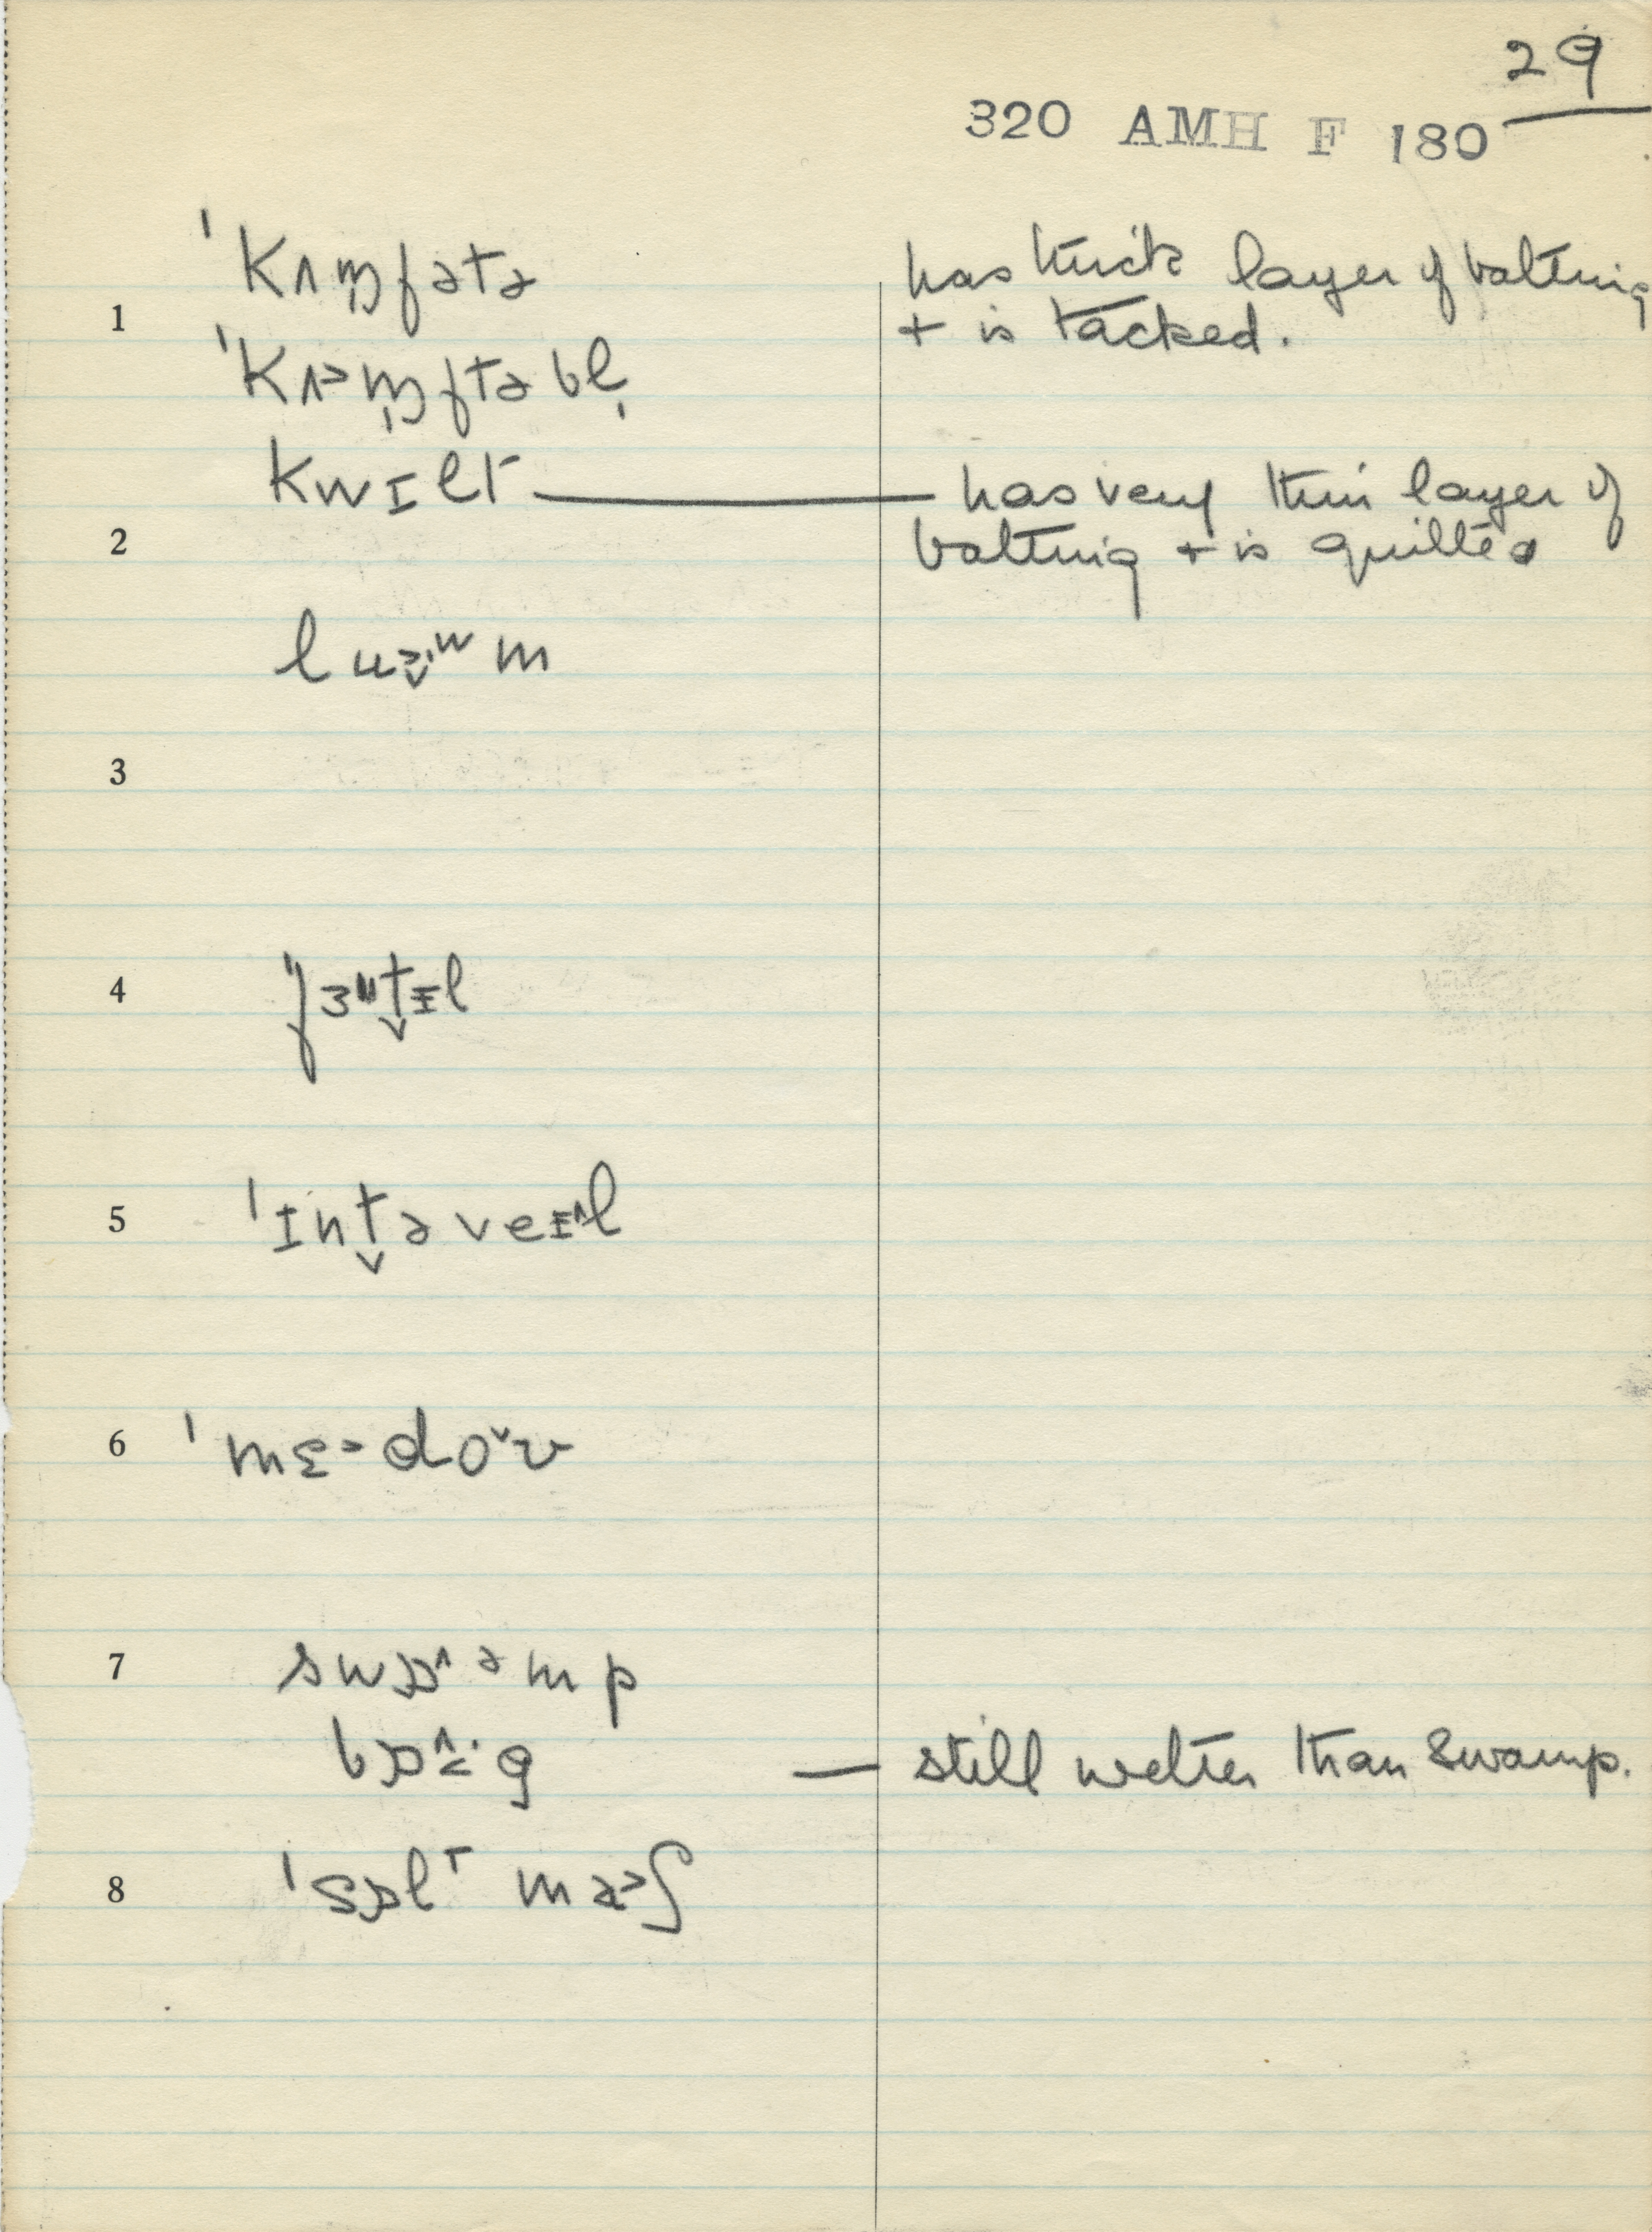 29
320 AMH F 180
ˈkʌɱfətə
has thick layer of batting
1
+ is tacked.
ˈkʌ>ɱftəbl̩
kwɪlt — has very thin layer of
2
batting + is quilted
m
3
4
5
ˈɪnt̬əveɪ^l
6
ˈmɛ>doˇʊ
7
swɒ^əmp
g — still wetter than swamp.
8
ˈsɒlt ma>ʃ